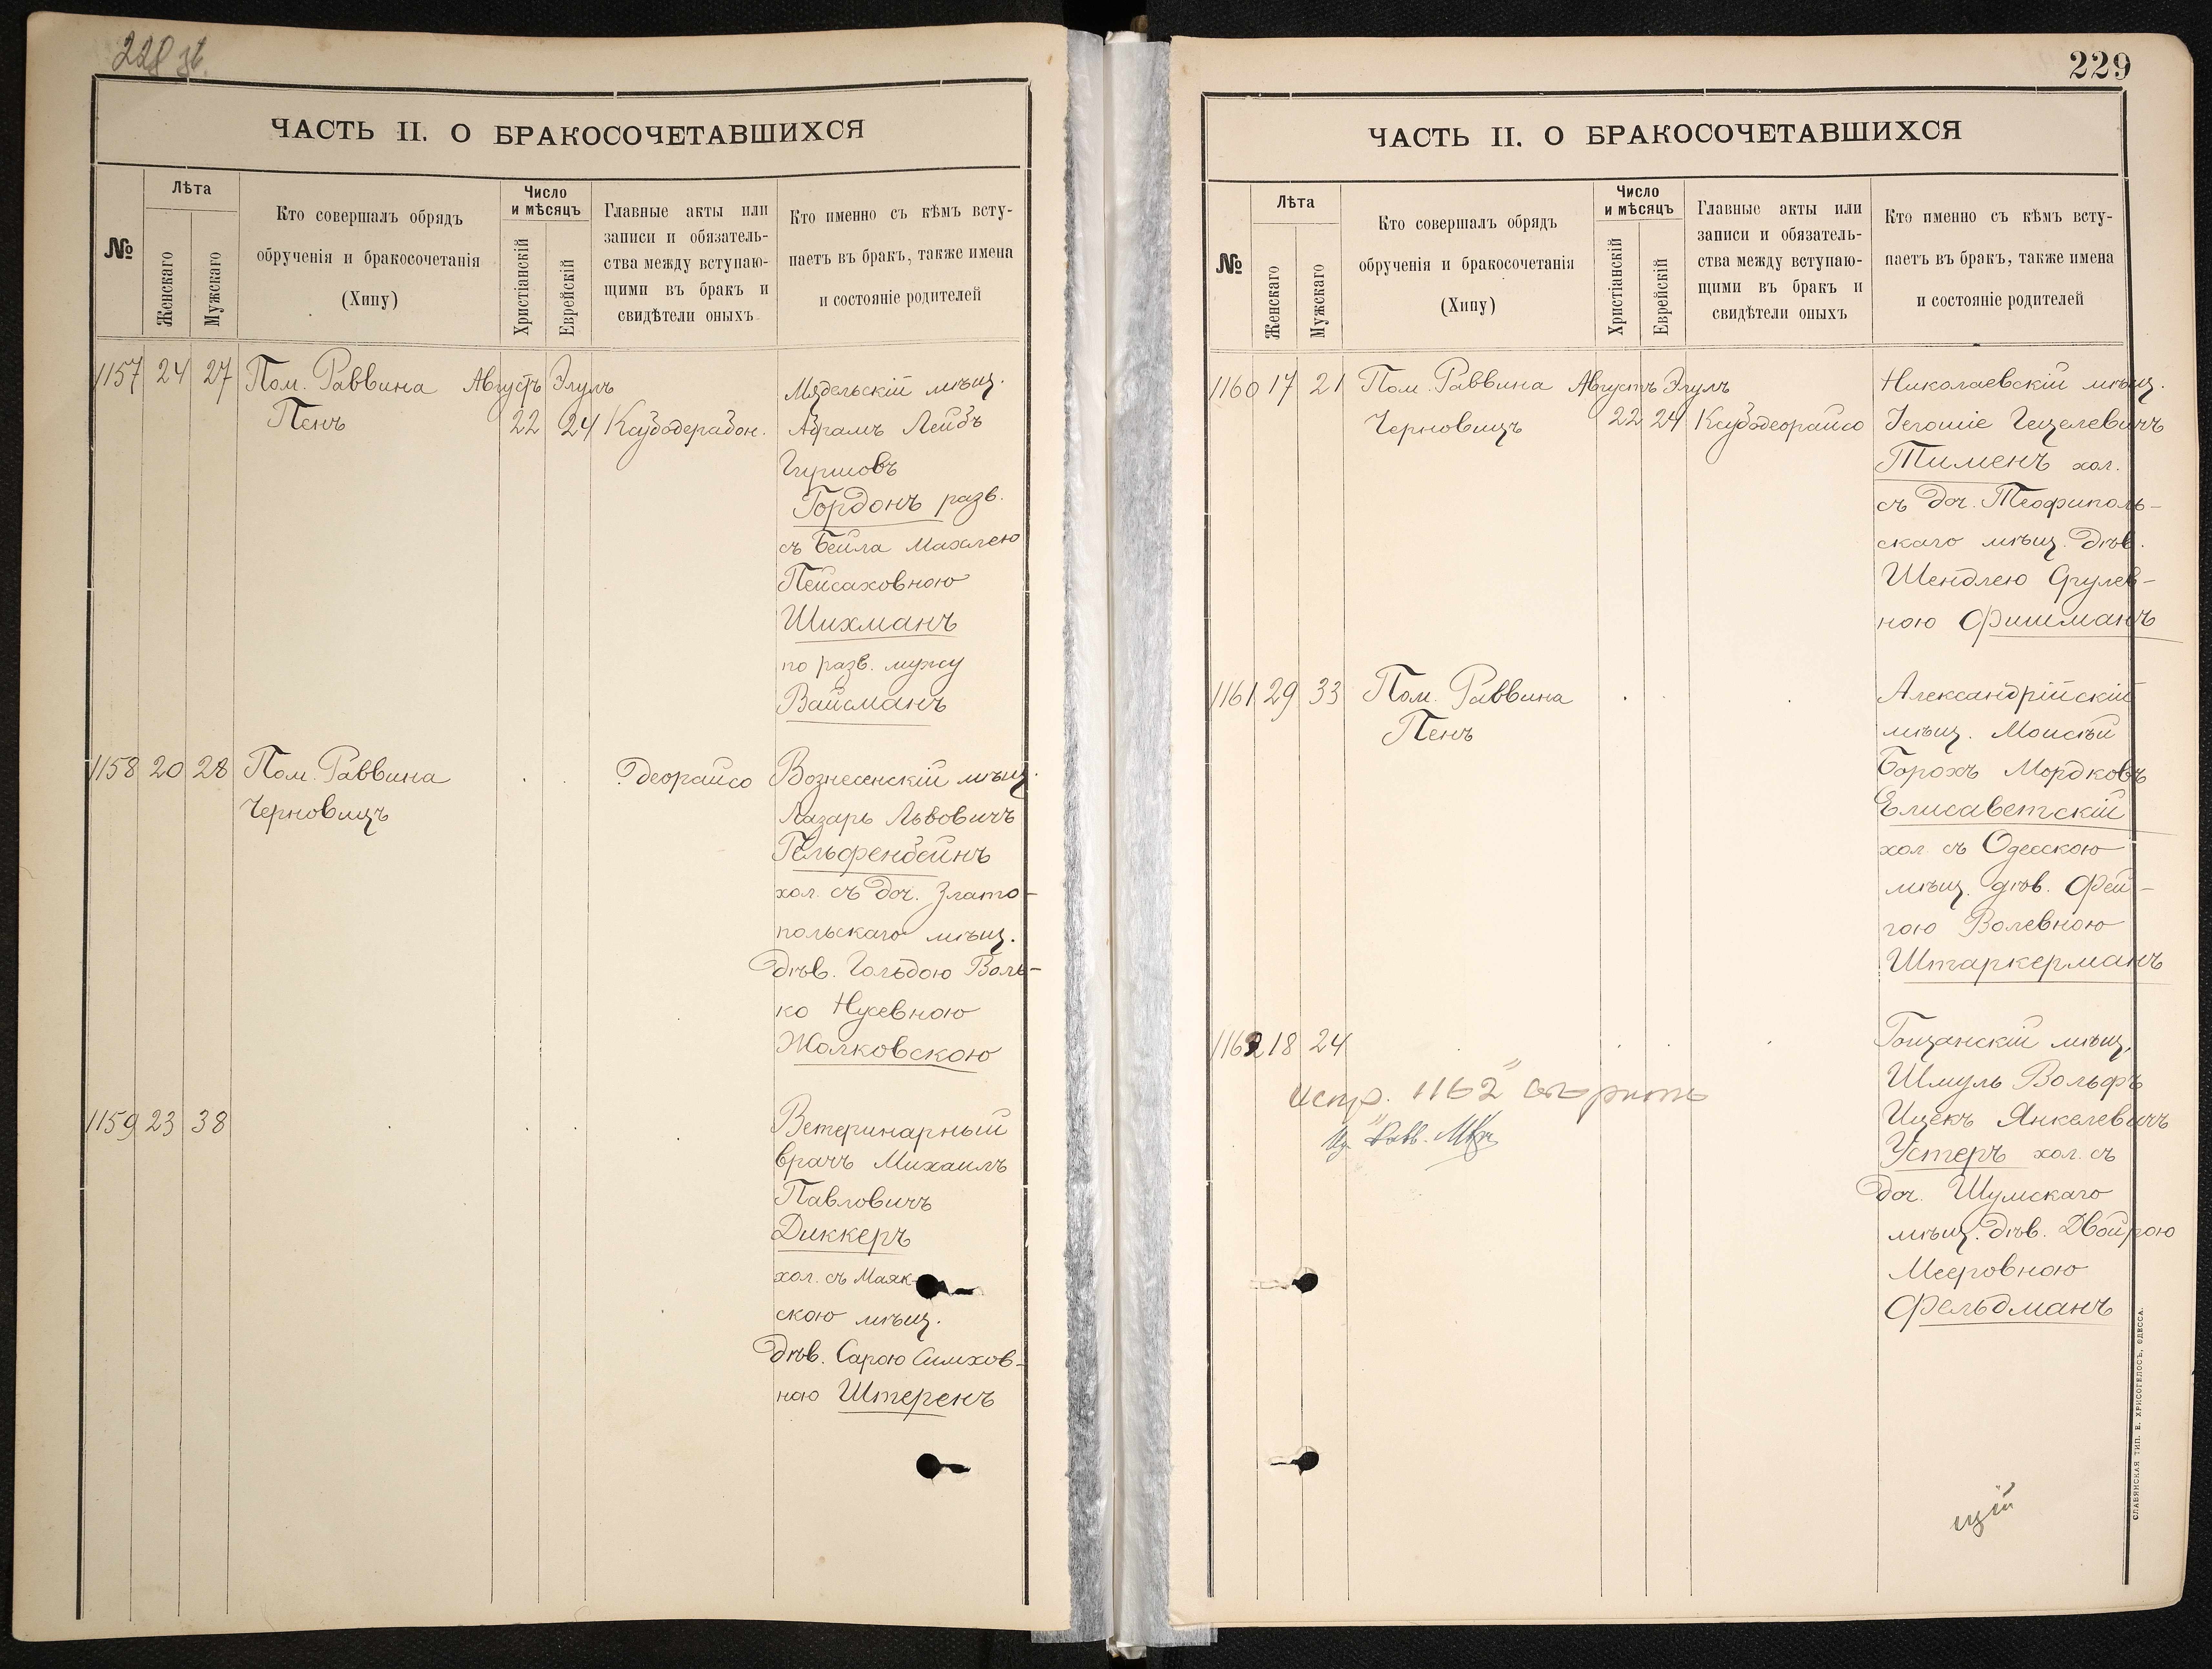 228
ЧАСТЬ II. О БРАКОСОЧЕТАВШИХСЯ
№
Лѣта
Женскаго
Мужскаго
Кто совершалъ обрядъ
обрученія и бракосочетанія
(Хипу)
Число
и мѣсяцъ
Христіанскій
Еврейскій
Главные акты или
записи и обязатель-
ства между вступаю-
щими въ бракъ и
свидѣтели оныхъ
Кто именно съ кѣмъ всту-
паетъ въ бракъ, также имена
и состояніе родителей
1157 24 27 Пом. Раввина Августъ Элулъ Мядельскій мѣщ.
Пенъ 22 24 Ксубодерабон. Абрамъ Лейбъ
Гиршовъ
Гордонъ разв.
съ Бейла Махлею
Пейсаховною
Шихманъ
по разв. мужу
Вайсманъ
1158 20 28 Пом. Раввина деорайсо Вознесенскій мѣщ.
Черновицъ Лазарь Львовичъ
Гельфенбейнъ
хол. съ доч. Злато-
польскаго мѣщ.
дѣв. Гольдою Воль-
ко Нусевною
Жолковскою
1159 23 38 Ветеринарный
врачъ Михаилъ
Павловичъ
Диккеръ
хол. съ Маяк-
скою мѣщ.
дѣв. Сарою Симхов-
ною Штеренъ
229
ЧАСТЬ II. О БРАКОСОЧЕТАВШИХСЯ
№
Лѣта
Женскаго
Мужскаго
Кто совершалъ обрядъ
обрученія и бракосочетанія
(Хипу)
Число
и мѣсяцъ
Христіанскій
Еврейскій
Главные акты или
записи и обязатель-
ства между вступаю-
щими въ бракъ и
свидѣтели оныхъ
Кто именно съ кѣмъ всту-
паетъ въ бракъ, также имена
и состояніе родителей
1160 17 21 Пом. Раввина Августъ Элулъ Николаевскій мѣщ.
Черновицъ 22 24 Ксубодеорайсо Іегошіе Гецелевичъ
Тименъ хол.
съ доч. Теофиполь-
скаго мѣщ. дѣв.
Шендлею Срулев-
ною Фишманъ
1161 29 33 Пом. Раввина Александрійскій
Пенъ мѣщ. Моисѣй
Борохъ Мордковъ
Елисаветскій
хол. съ Одесскою
мѣщ. дѣв. Фей-
гою Волевною
Штаркерманъ
1162 18 24 Гощанскій мѣщ.
Шмуль Вольфъ
Ицекъ Янкелевичъ
Устеръ хол. съ
доч. Шумскаго
мѣщ. дѣв. Двойрою
Мееровною
Фельдманъ
испр. "1162" вѣрить
Равв.
СЛАВЯНСКАЯ ТИП. Е. ХРИСОГЕЛОСЪ, ОДЕССА.